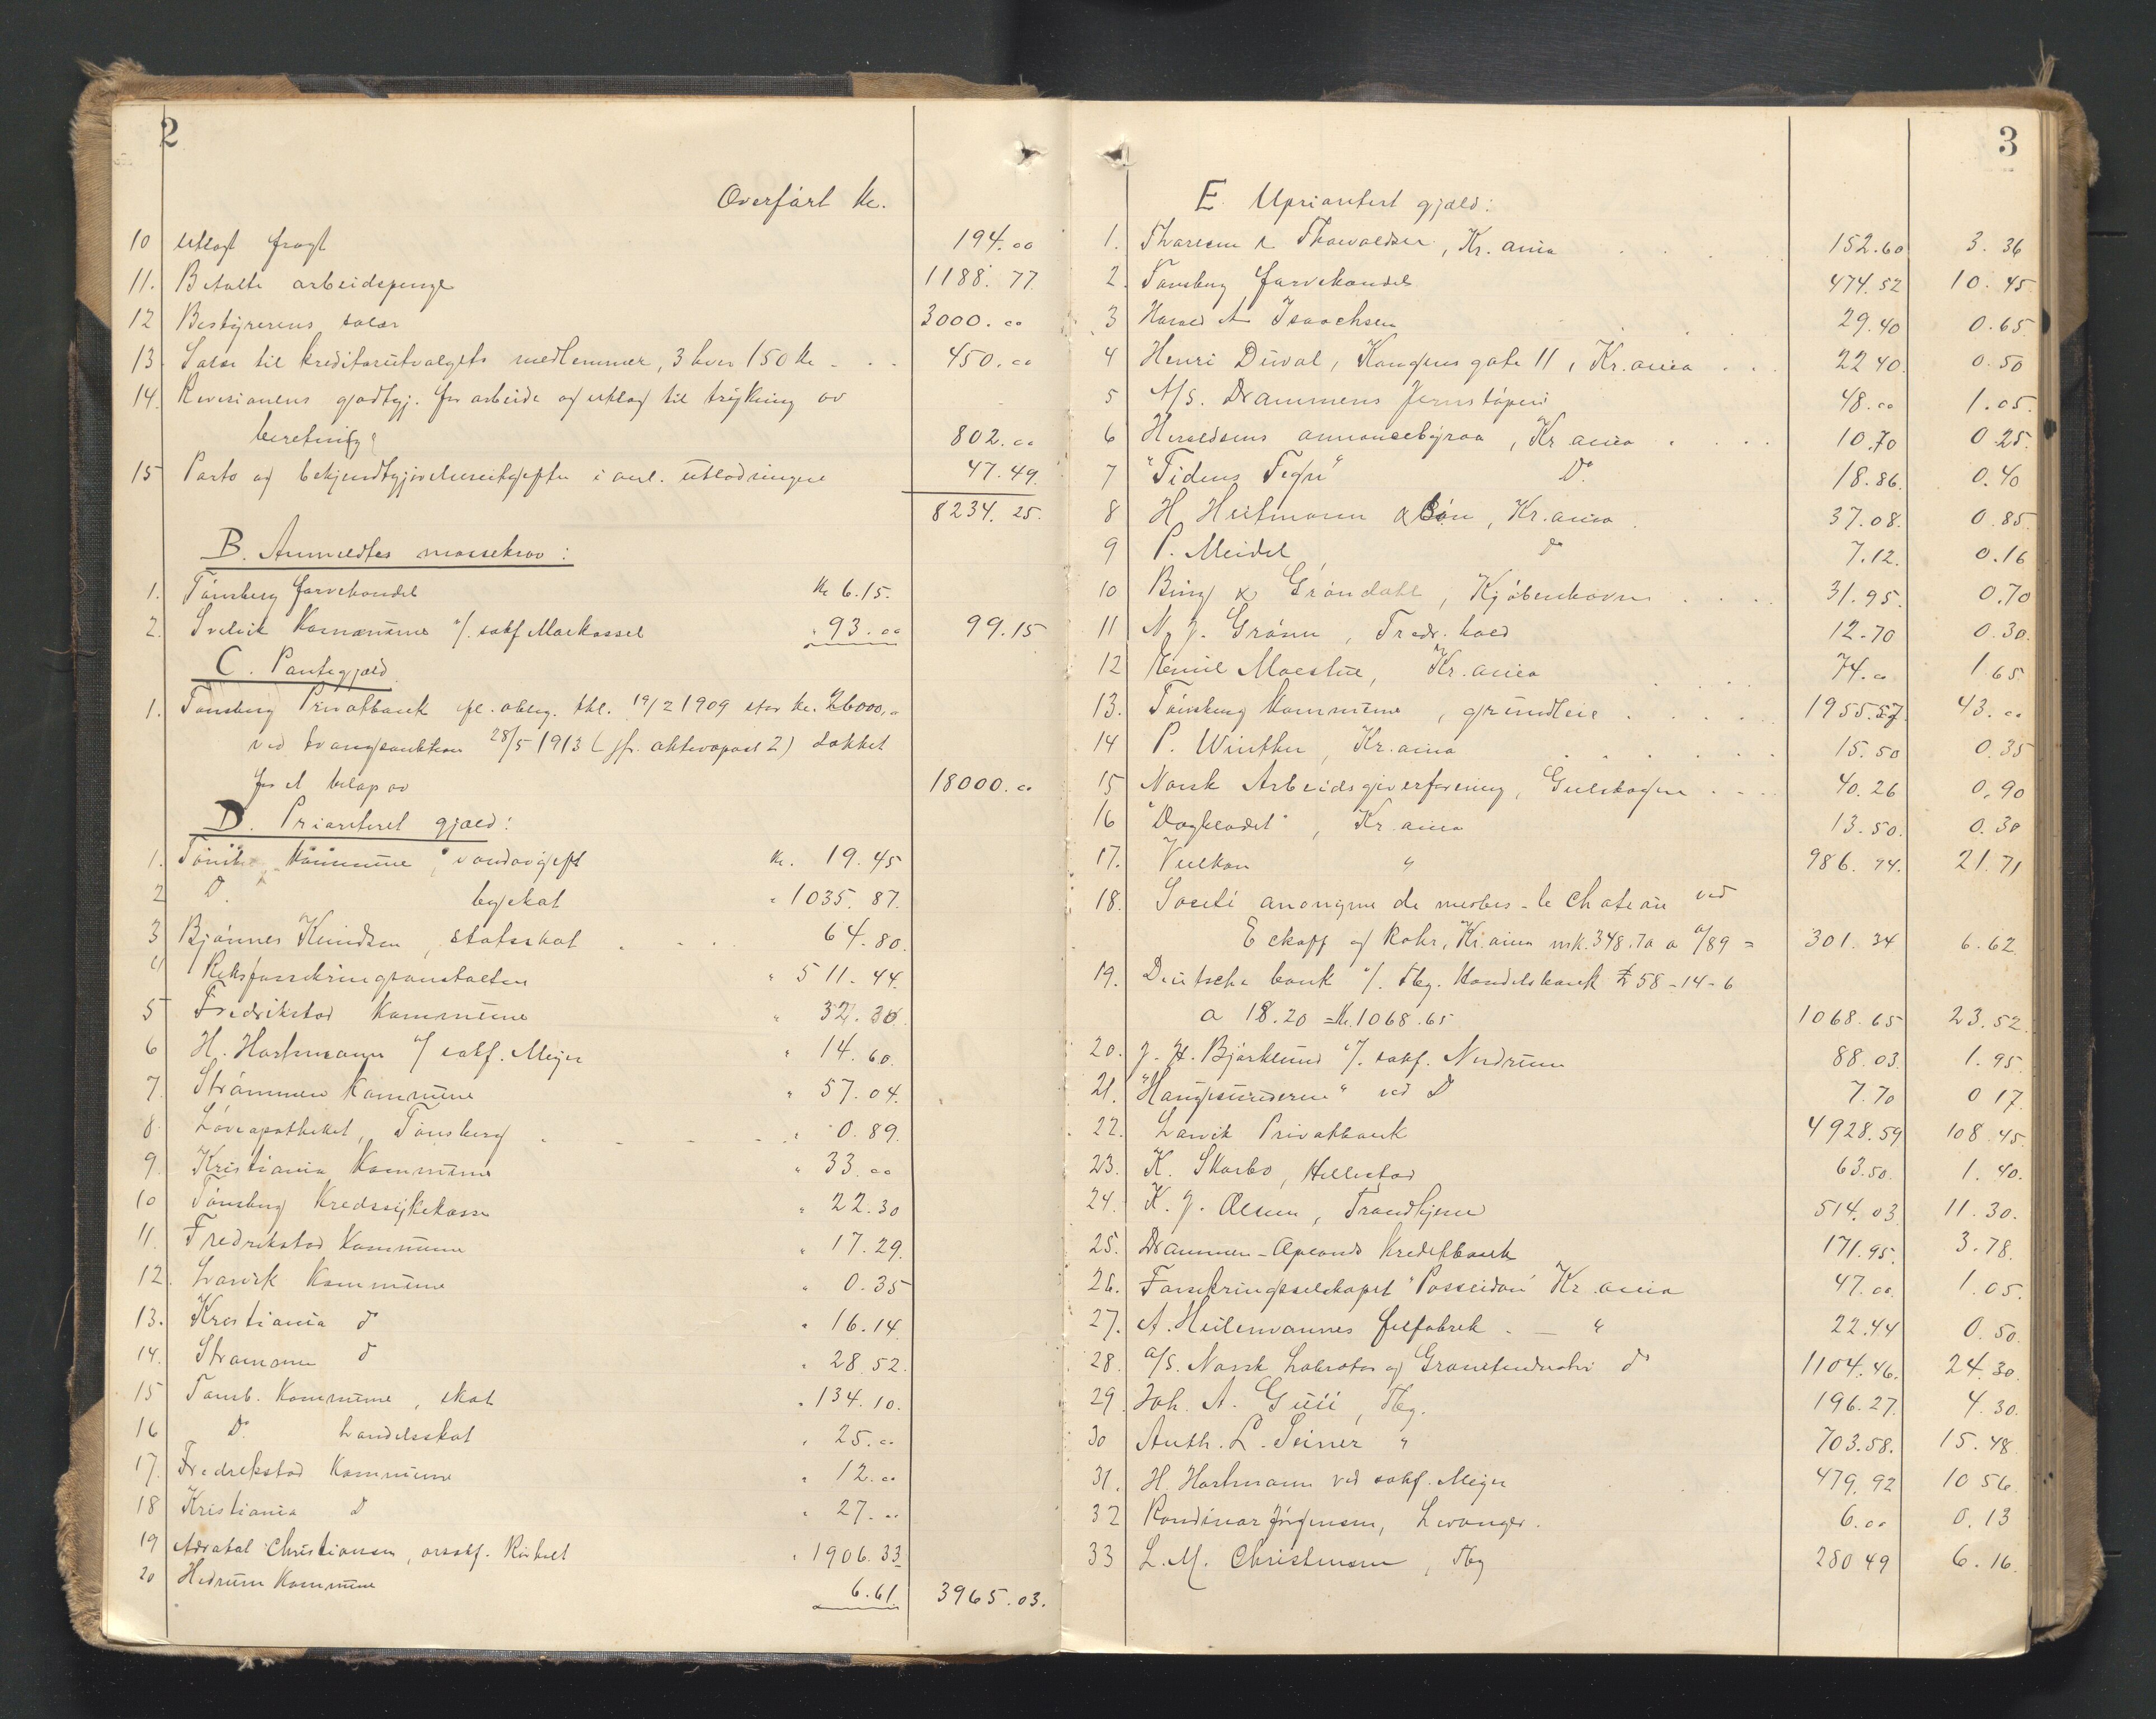 2
Overført Kr.
10 Utlagt fragt 194.00
11. Betalte arbeidspenge 1188.77
12 Bestyrerens salær 3000.00
13. Salær til kreditorutvalgets medlemmer, 3 hver 150 Kr. 450.00
14. Revisionens godtgj. for arbeide og utlæg til trykning av
beretning 802.00
15 Porto og bekjendtgjørelsesutgifter i anl. utlodningen 47.49
8234.25
B. Anmeldtes massekrav:
1. Tønsberg farvehandel Kr 6.15
2. Svelvik Kommune v/ sakf Markussel " 93.00 99.15
C. Pantegjæld
1. Tønsberg Privatbank ifl. oblig. thl. 19/2 1909 stor Kr. 26000,00
ved tvangsauktion 28/5 1913 (jfr. aktivapost 2) dækket
for et beløp av 18000.00
D. Prioritert gjæld:
1. Tønsb. Kommune, vandavgift Kr. 19.45
2 Do. byskat " 1035.87
3 Bjønnes Knudsen, statsskat 64.80
4 Riksforsikringsanstalten " 511.44
5 Fredrikstad Kommune " 32.30
6 H. Hartmann v/ sakf. Meyer " 14.60
7. Strømmen Kommune " 57.04
8. Løveapotheket, Tønsberg " 0.89
9. Kristiania Kommune " 33.00
10 Tønsberg Kredssykekasse " 22.30
11. Fredrikstad Kommune " 17.29
12. Larvik Kommune " 0.35
13. Kristiania do " 16.14
14. Strømmen do " 28.52
15 Tønsb. Kommune, skat " 134.10
16 Do. Landsskat " 25.00
17. Fredrikstad Kommune " 12.00
18 Kristiania do " 27.00
19 Christiansen, " 1906.33
20 Hedrum Kommune 6.61 3965.03
3
E. Uprioritert gjæld:
1. Thoresen & Thorvaldsen, Kr.ania 152.60 3.36
2. Tønsberg farvehandel 474.52 10.45
3 Harald A Isaachsen 29.40 0.65
4 Henri Duval, Kongens gate 11, Kr.ania 22 40 0.50
5 A/S. Drammens Jernstøperi 48.00 1.05
6 Heroldens annoncebyraa, Kr ania 10.70 0.25
7 "Tidens Tegn" Do. 18.86 0.40
8 H. Heitmann & Søn, Kr.ania 37.08 0.85
9 P. Meidel do 7.12 0.16
10 Bing & Grøndahl, Kjøbenhavn 31.95 0.70
11 N. J. Grønn, Fredr.hald 12.70 0.30
12 Emil Moestue, Kr.ania 74.00 1 65
13. Tønsberg Kommune, grundleie 1955.57 43.00
14 P. Winther, Kr.ania 15.50 0.35
15 Norsk Arbeidsgiverforening, Gulskogen 40.26 0.90
16 "Dagbladet", Kr.ania 13.50 0.30
17. Vulkan " 986.74 21.71
18. Societi anonyme de merbes-le chateau ved
Eckoff og Rohr, Kr.ania mk. 348.70 a 0/89 = 301.34 6.62
19. Deutsche bank v/. Tbg. Handelsbank £ 58-14-6
a 18.20 = Kr. 1068.65 1068.65 23.52
20. J. H. Bjørklund v/. sakf. Nedrum 88.03 1.95
21. "Haugesunderen" ved Do 7.70 0 17
22. Larvik Privatbank 4928.59 108.45
23. K. Skarbo, Hillestad 63.50 1.40
24. K. J. Olsen, Trondhjem 514.03 11.30
25. Drammen-Oplands Kreditbank 171.95 3.78
26. Forsikringsselskapet "Posseidon" Kr.ania 47.00 1.05
27. A. Heilemannes filfabrik - " 22.44 0.50
28. A/S. Norsk Labrator og Granitindustri do 1104.46 24.30
29. Joh. A. Guii, Tbg. 196.27 4.30
30 Anth. L. Seiner " 703.58 15.48
31. H. Hartmann ved sakf. Meyer 479.92 10 56
32 Randinar Jørgensen, Levanger. 6.00 0.13
33 L. M. Christensen, Tbg 280 49 6.16